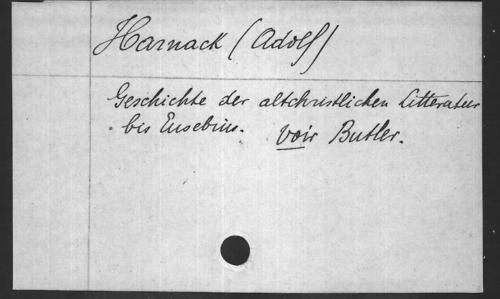 Harnack (Adolf)
Geschichte der altchristlichen Litteratur
bis Eusebius. voir Butler.